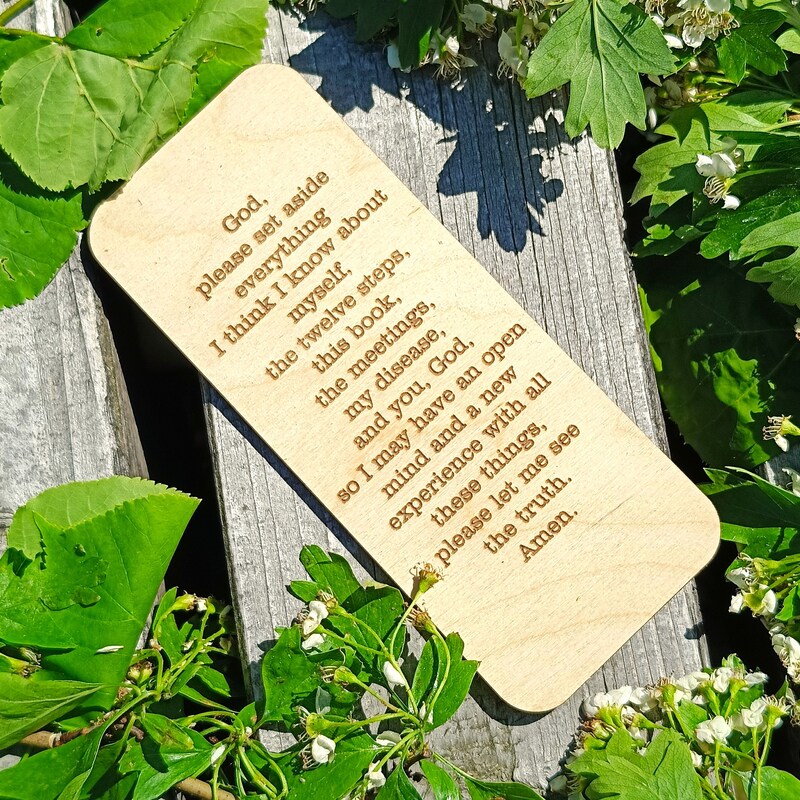 God,
please set aside
everything
I think I know about
myself,
the twelve steps,
this book,
the meetings,
my disease,
and you, God,
so I may have an open
mind and a new
experience with all
these things,
please let me see
the truth.
Amen.